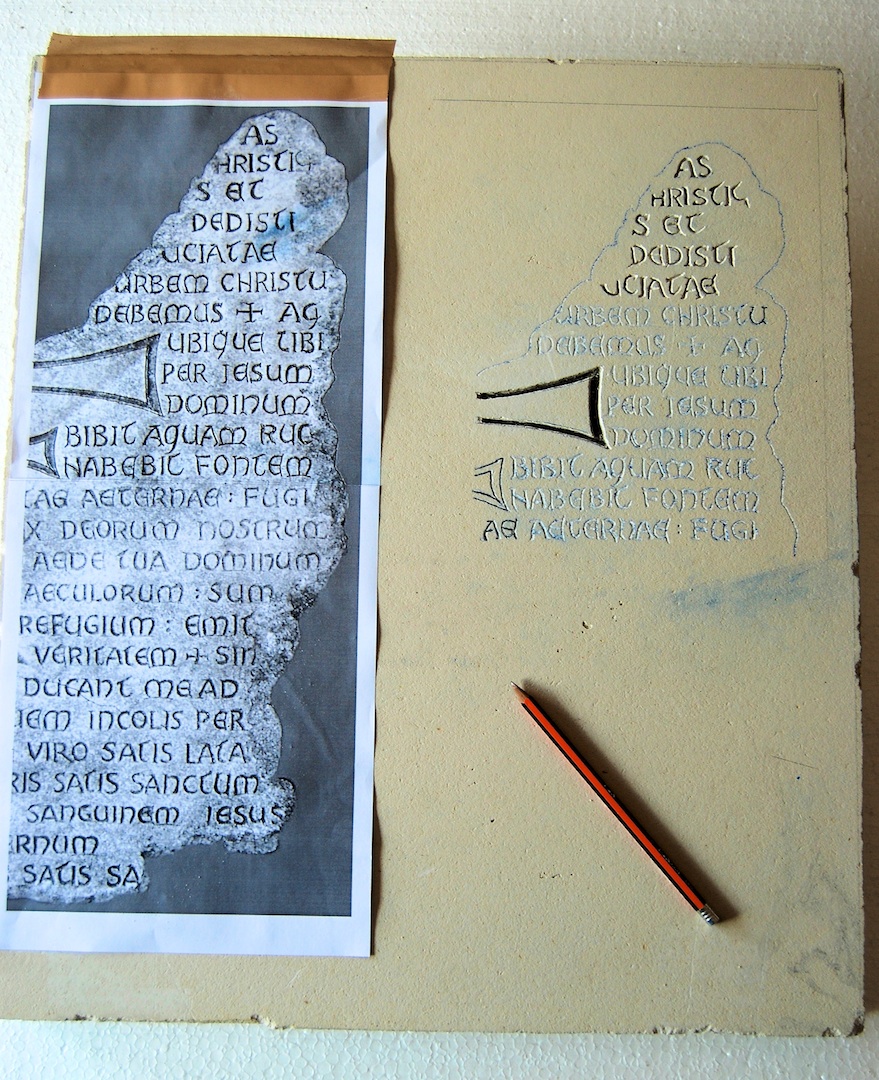 AS
HRISTIC
S ET
DEDISTI
UCIATAE
URBEM CHRISTU
DEBEMUS + AG
UBIQUE TIBI
PER IESUM
DOMINUM
BIBIT AQUAM RUT
HABEBIT FONTEM
TAE AETERNAE : FUGI
X DEORUM NOSTRUM
AEDE TUA DOMINUM
AECULORUM : SUM
REFUGIUM : EMIT
VERITATEM + SIN
DUCANT ME AD
IEM INCOLIS PER
VIRO SATIS LATA
RIS SATIS SANCTUM
SANGUINEM IESUS
ERNUM
SATIS SA
AS
HRISTIC
S ET
DEDISTI
UCIATAE
URBEM CHRISTU
DEBEMUS + AG
UBIQUE TIBI
PER IESUM
DOMINUM
BIBIT AQUAM RUT
HABEBIT FONTEM
AE AETERNAE : FUGI